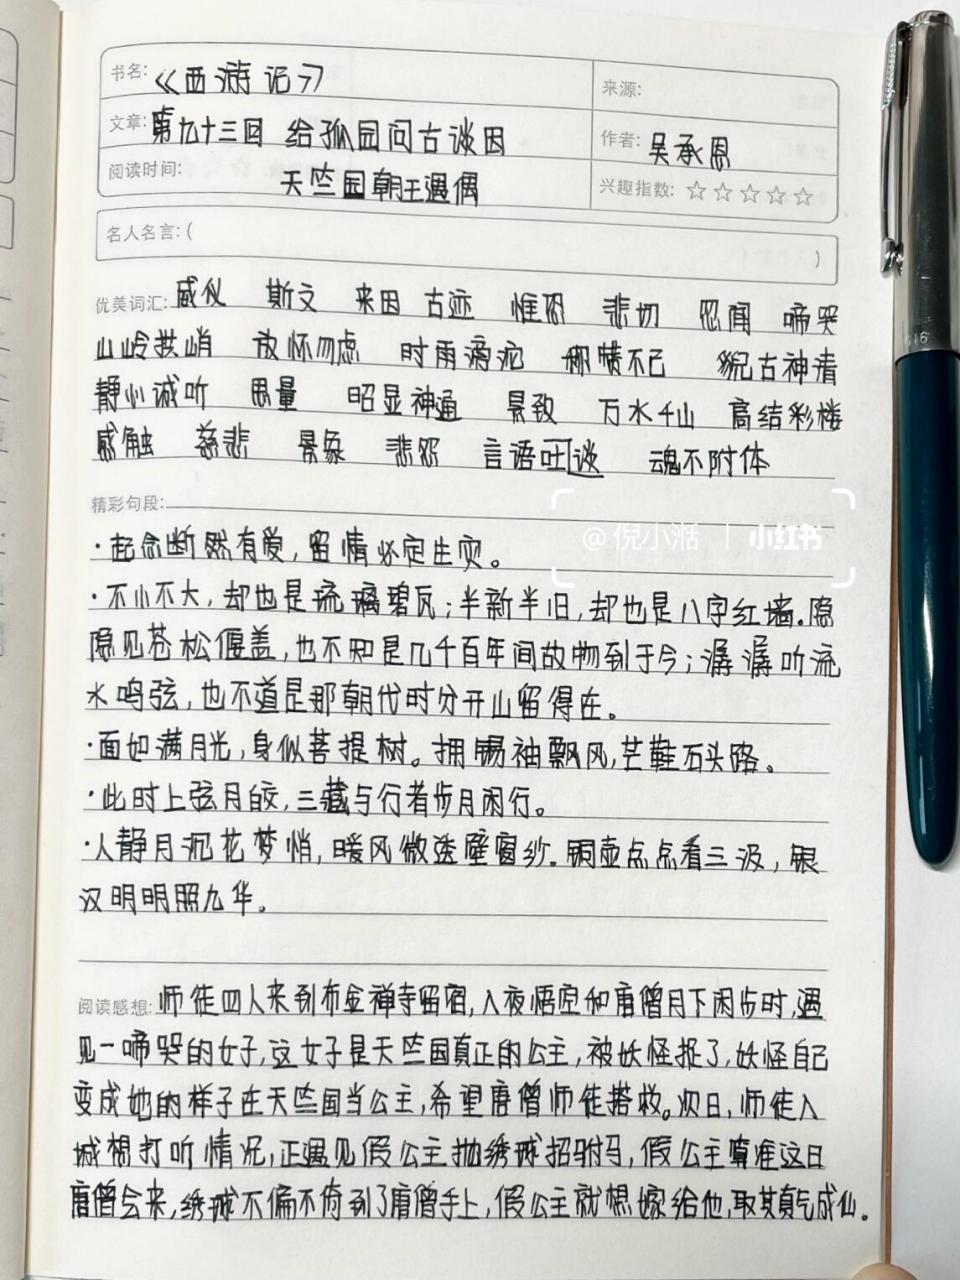 书名:《西游记》
来源:
文章:第九十三回 给孤园问古谈因
作者:吴承恩
阅读时间: 天竺国朝王遇偶
兴趣指数: ☆☆☆☆☆
名人名言:( )
优美词汇: 威仪 斯文 来因 古迹 惟恐 悲切 忽闻 啼哭
山岭拱峭 放怀勿虑 时雨滂沱 挪惰不已 貌古神清
静心诚听 思量 昭显神通 景致 万水千山 高结彩楼
感触 慈悲 景象 悲怨 言语吐谈 魂不附体
精彩句段:
@倪小湉 | 小红书
·起念断然有爱,留情必定生灾。
·不小不大,却也是琉璃碧瓦;半新半旧,却也是八字红墙。隐
隐见苍松偃盖,也不知是几千百年间故物到于今;潺潺听流
水鸣弦,也不道是那朝代时分开山留得在。
·面如满月光,身似菩提树。拥锡袖飘风,芒鞋石头路。
·此时上弦月皎,三藏与行者步月闲行。
·人静月沉花梦悄,暖风微透壁窗纱。铜壶点点看三汲,银
汉明明照九华。
阅读感想:师徒四人来到布金禅寺留宿,入夜悟空和唐僧月下闲步时,遇
见一啼哭的女子,这女子是天竺国真正的公主,被妖怪捉了,妖怪自己
变成她的样子在天竺国当公主,希望唐僧师徒搭救。次日,师徒入
城想打听情况,正遇见假公主抛绣球招驸马,假公主算准这日
唐僧会来,绣球不偏不倚到了唐僧手上,假公主就想嫁给他,取其真气成仙。
616